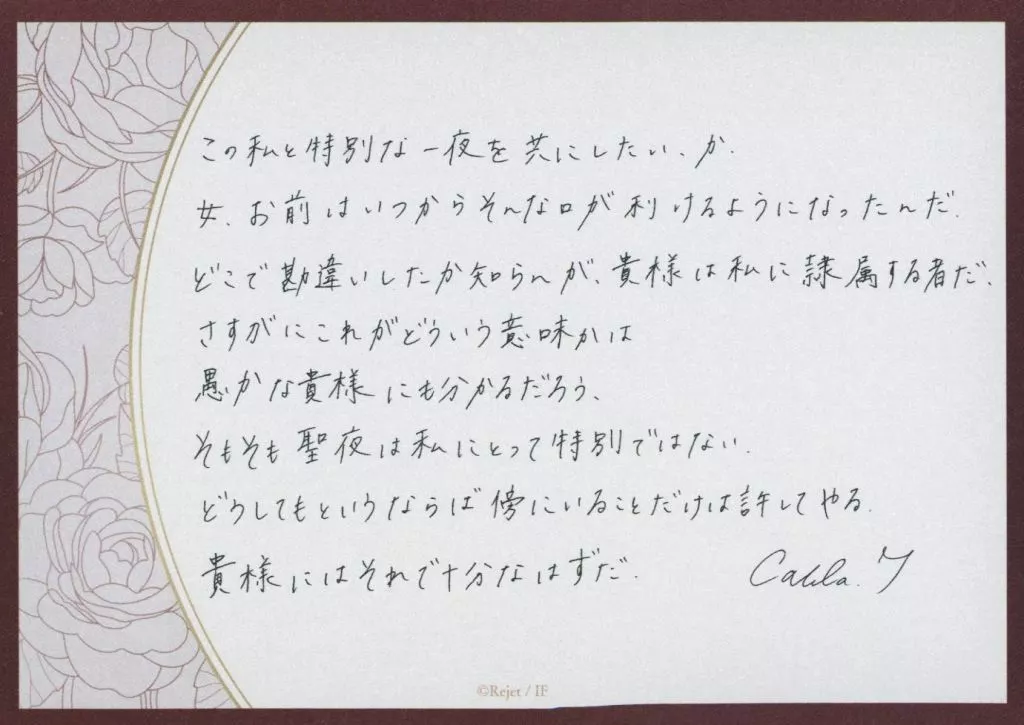 この私と特別な一夜を共にしたい、か.
女、お前はいつからそんな口が利けるようになったんだ.
どこで勘違いしたか知らんが、貴様は私に隷属する者だ、
さすがにこれがどういう意味かは
愚かな貴様にも分かるだろう、
そもそも聖夜は私にとって特別ではない.
どうしてもというならば傍にいることだけは許してやる.
貴様にはそれで十分なはずだ.
Carla. T
©Rejet / IF